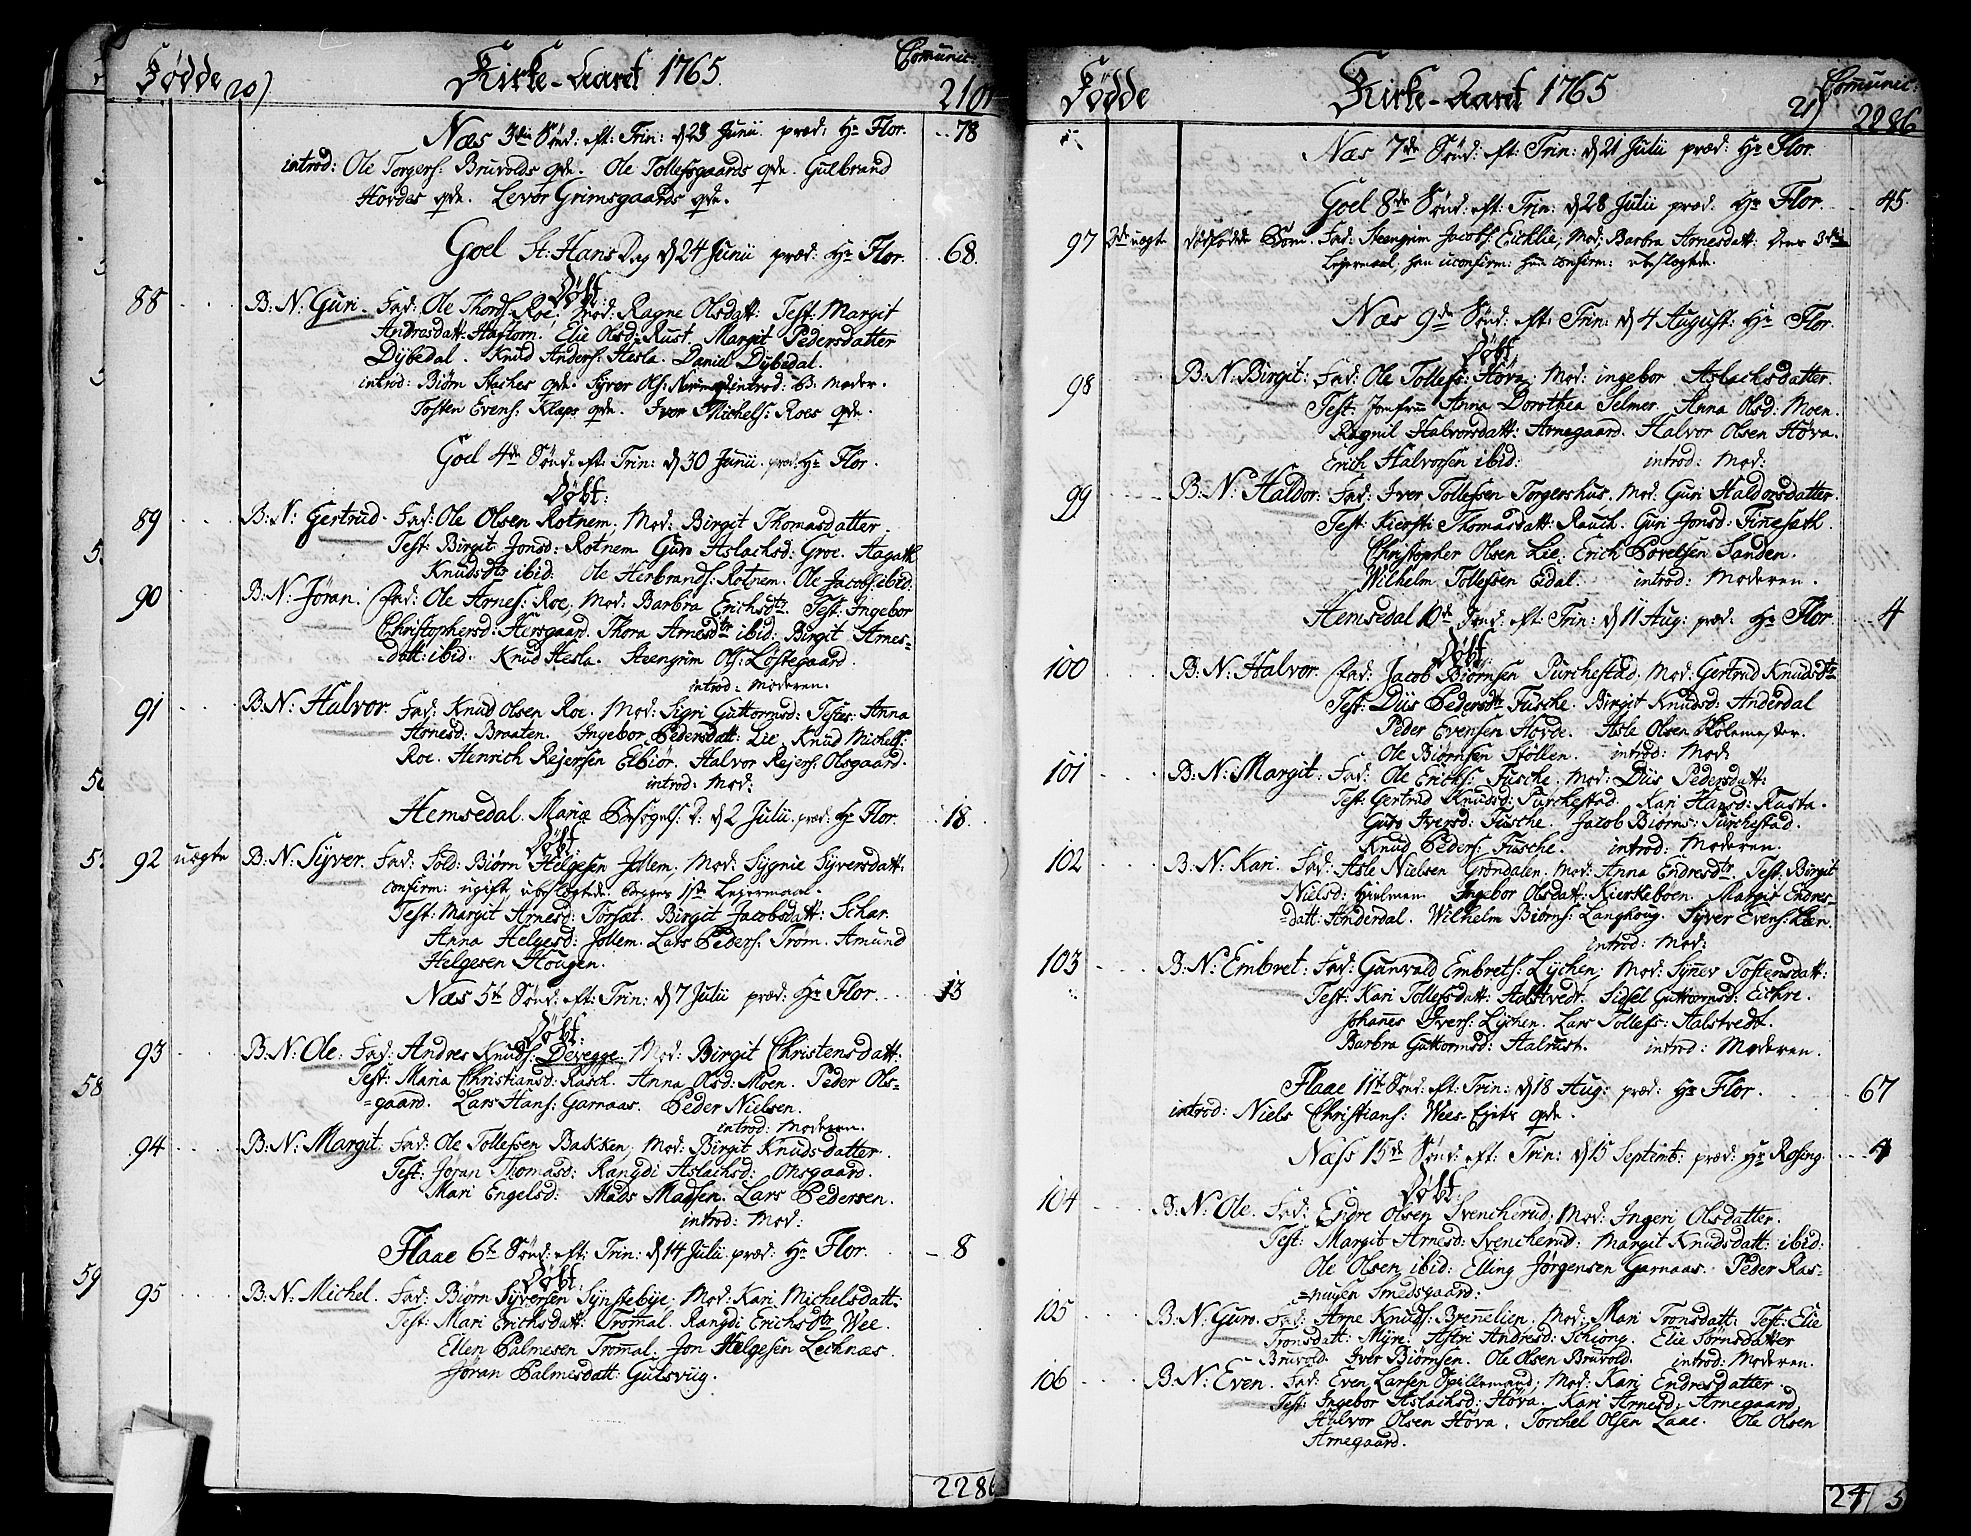 Fødde 20) Kirke-Aaret 1765. Comunic:
2101
Næs 3die Sønd: eft: Trin: d 23 Junii. præd: Hr Flor. 78
introd: Ole Torgers: Bruvolds qde. Ole Tollefsgaards qde. Gulbrand
Hovdes qde. Levor Grimsgaards qde.
Goel St: Hans Dag d 24 Junii præd: Hr Flor. 68.
Døbt:
88 B: N: Guri. Fad: Ole Thords: Roe, Mod: Ragne Olsdatt: Test: Margit
Andrasdatt: Haftorn, Elie Olsd: Rust. Margit Pedersdatter
Dybedal. Knud Anders: Hesla. Daniel Dybedal.
introd: Biørn Staches qde. Syver Ols: introd: B: Moder.
Tosten Evens: Klaps qde. Iver Michels: Roes qde.
Goel 4de Sønd: eft: Trin: d 30 Junii. præd: Hr Flor.
Døbt:
89 B: N: Gertrud. Fad: Ole Olsen Rotnem, Mod: Birgit Thomasdatter.
Test: Birgit Jonsd: Rotnem. Guro Aslachsd: Groe. Aagath
Knudsdtr ibid: Ole Herbrands: Rotnem. Ole Jacobs: ibid:
90 B: N: Jøran. Fad: Ole Arnes: Roe, Mod: Barbra Erichsdtr. Test: Ingebor
Christophersd: Hersgaard. Thora Arnesdtr ibid: Birgit Arnes-
datt: ibid. Knud Hesla. Steengrim Ols: Løstegaard.
introd: Moderen.
91 B: N: Halvor. Fad: Knud Olsen Roe. Mod: Sigri Guttormsd: Testes: Anna
Arnesd: Braaten. Ingebor Pedersdatt: Lie. Knud Michels:
Roe. Henrich Reiersen Elbiør. Halvor Rejers: Olsgaard.
introd: Mod:
Hemsedal. Mariæ Besøgels: D: d 2 Julii. præd: Hr Flor. 18
Døbt:
92 uægte B: N: Syver. Fad: Sold: Biørn Helgesen Jollem. Mod: Sygnie Syversdatt:
confirm: ugift, ubeslægtede. begges 1ste Lejermaal.
Test: Margit Arnesd: Torset. Birgit Jacobsdatt: Schar.
Anna Helgesd: Jollem. Lars Peders: Trøm. Amund
Helgesen Hougen.
Næs 5te Sønd: eft: Trin: d 7 Julii præd: Hr Flor. 13
Døbt:
93 B: N: Ole. Fad: Andres Knuds: Devegge. Mod: Birgit Christensdatt:
Test: Maria Christiansd: Rasch. Anna Olsd: Moen. Peder Ols-
=gaard. Lars Hans: Garnaas. Peder Nielsen.
introd: Moderen.
94 B: N: Margit. Fad: Ole Tollefsen Bakken, Mod: Birgit Knudsdatter.
Test: Jøran Thomasd: Rangdi Aslachsd: Onsgaard.
Mari Engelsd: Mads Madsen. Lars Pedersen.
introd: Mod:
Flaae 6te Sønd: eft: Trin: d 14 Julii præd: Hr Flor. 8
Døbt:
95 B: N: Michel. Fad: Biørn Syversen Synstebye. Mod: Kari Michelsdatt:
Test: Mari Erichsdatt: Tromal. Rangdi Erichsdtr Wee.
Ellen Palmesen Tromal. Jon Helgesen Lechnæs.
Jøran Palmesdatt: Gulsviig.
2286
Fødde Kirke-Aaret 1765 21) Comunic:
2286
Næs 7de Sønd: eft: Trin: d 21 Julii præd: Hr Flor.
Goel 8de Sønd: eft: Trin: d 28 Julii præd: Hr Flor. 45.
97 2de uægte dødfødde Børn. Fad: Steengrim Jacobs: Eicklie, Mod: Barbra Arnesdatt: deres 3die
Lejermaal, han uconfirm: hun confirm: ubeslægtede.
Næs 9de Sønd: eft: Trin: d 4 August: Hr Flor.
Døbt.
98 B: N: Birgit: Fad: Ole Tollefs: Høva, Mod: ingebor Aslachsdatter.
Test: Jomfru Anna Dorothea Selmer. Anna Olsd: Moen.
Ragnil Halvorsdatt: Arnegaard. Halvor Olsen Høva.
Erich Halvorsen ibid: introd: Mod:
99 B: N: Haldor. Fad: Iver Tollefsen Torgershus. Mod: Guri Haldorsdatter.
Test: Kiersti Thomasdatt: Rauch. Guri Jonsd: Finesath.
Christopher Olsen Lie. Erich Povelsen Sanden.
Wilhelm Tollefsen Eidal. introd: Moderen.
Hemsedal 10de Sønd: eft: Trin: d 11 Aug: præd: Hr Flor 4
Døbt:
100 B: N: Halvor. Fad: Jacob Biørnsen Turchestad. Mod: Gertrud Knudsdtr
Test: Diis Pedersdtr Fusche. Birgit Knudsd: Anderdal
Peder Evensen Hovde. Asle Olsen Skolemester.
Ole Biørnsen Støllen. introd: Mod:
101 B: N: Margit. Fad: Ole Erichs: Fusche, Mod: Diis Pedersdatt:
Test: Gertrud Knudsd: Turchestad. Kari Hansd: Rusta.
Guro Iversd: Fusche. Jacob Biørns: Turchestad.
Knud Peders: Fusche. introd: Moderen.
102 B: N: Kari. Fad: Asle Nielsen Grøndalen. Mod: Anna Endresdtr. Test: Birgit
Nielsd: Hielmen. Ingebor Olsdatt: Kierkebøen. Margit Endres-
=datt: Anderdal. Wilhelm Biørns: Langhoug. Syver Evens: Løen.
introd: Mod:
103 B: N: Embret: Fad: Gunvald Embrets: Lychen, Mod: Synev Tostensdatt:
Test: Kari Tollefsdatt: Aalstvedt. Sidsel Guttormsd: Eichre.
Johanes Ivers: Lychen. Lars Tollefs: Aalstvedt.
Barbra Guttormsd: Aalrust. introd: Moderen.
Flaae 11te Sønd: eft: Trin: d 18 Aug: præd: Hr Flor. 67
introd: Niels Christians: Wees Ejets qde.
Næss 15de Sønd: eft: Trin: d 15 Septemb: præd: Hr Rosing. 4
Døbt:
104 B: N: Ole. Fad: Endre Olsen Svencherud, Mod: Ingeri Olsdatter.
Test: Margit Arnesd: Svencherud: Margit Knudsdatt: ibid:
Ole Olsen ibid: Elling Jørgensen Garnaas. Peder Ras-
=musen Smedsgaard:
105 B: N: Guro. Fad: Arne Knuds: Brenelien, Mod: Mari Tronsdatt: Test: Elie
Tronsdatt: Myre. Astri Andresd: Schiong. Elie Sørnsdatter
Bruvold. Iver Biørnsen. Ole Olsen Bruvold. introd: Moderen.
106 B: N: Even. Fad: Even Larsen Spillemand, Mod: Kari Endresdatter.
Test: Ingebor Aslachsd: Høva. Kari Arnesd: Arnegaard.
Halvor Olsen Høva. Torchel Olsen Laae. Ole Olsen
Arnegaard.
58
59